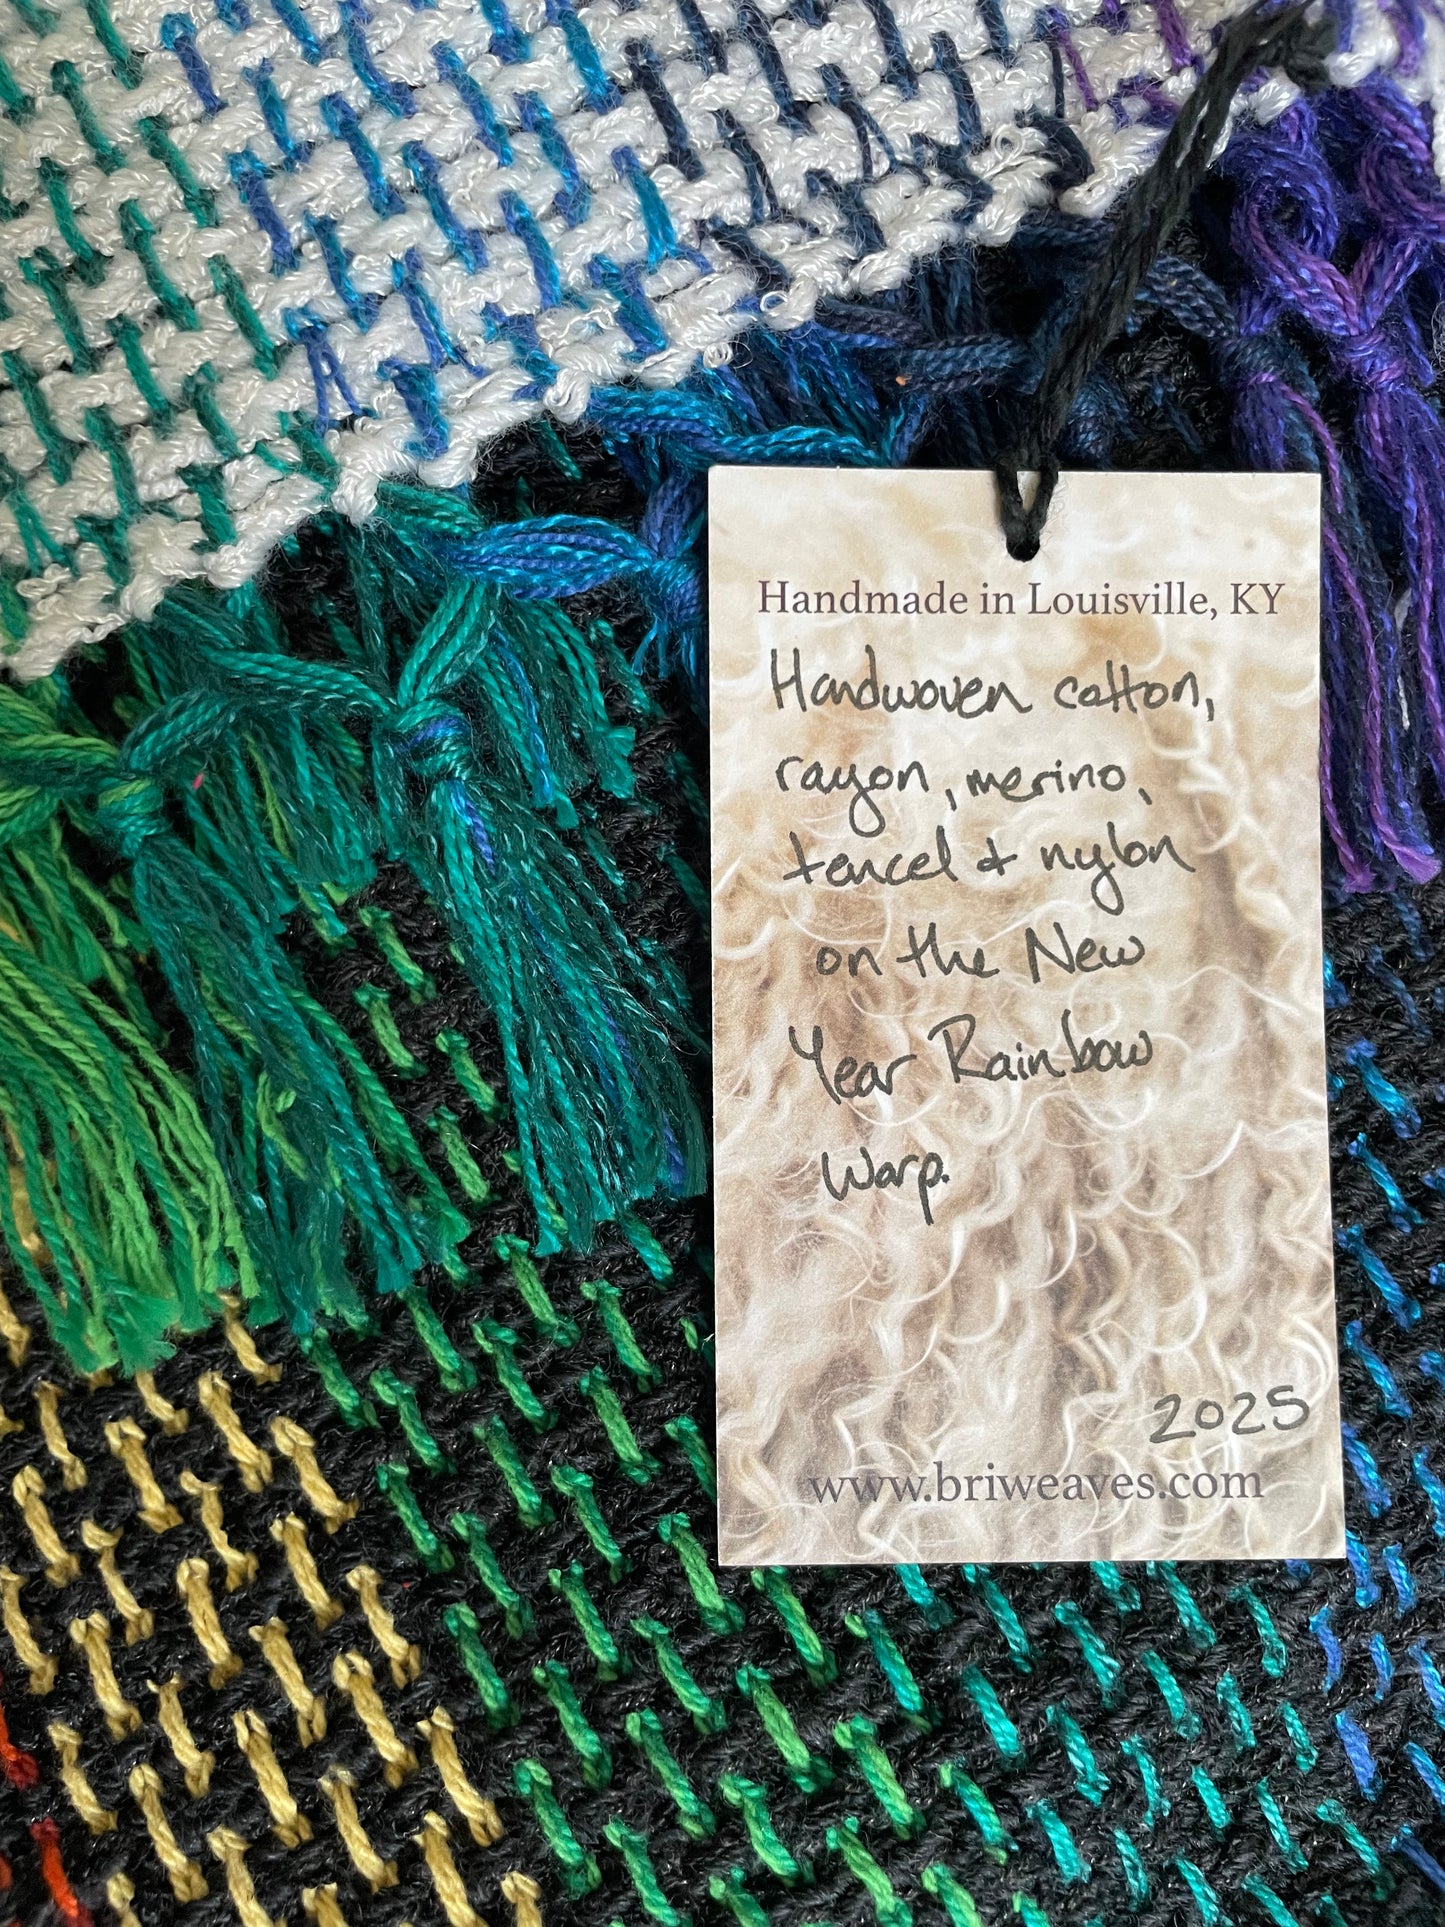 Handmade in Louisville, KY
Handwoven cotton,
rayon, merino,
tencel & nylon
on the New
Year Rainbow
Warp.
2025
www.briweaves.com